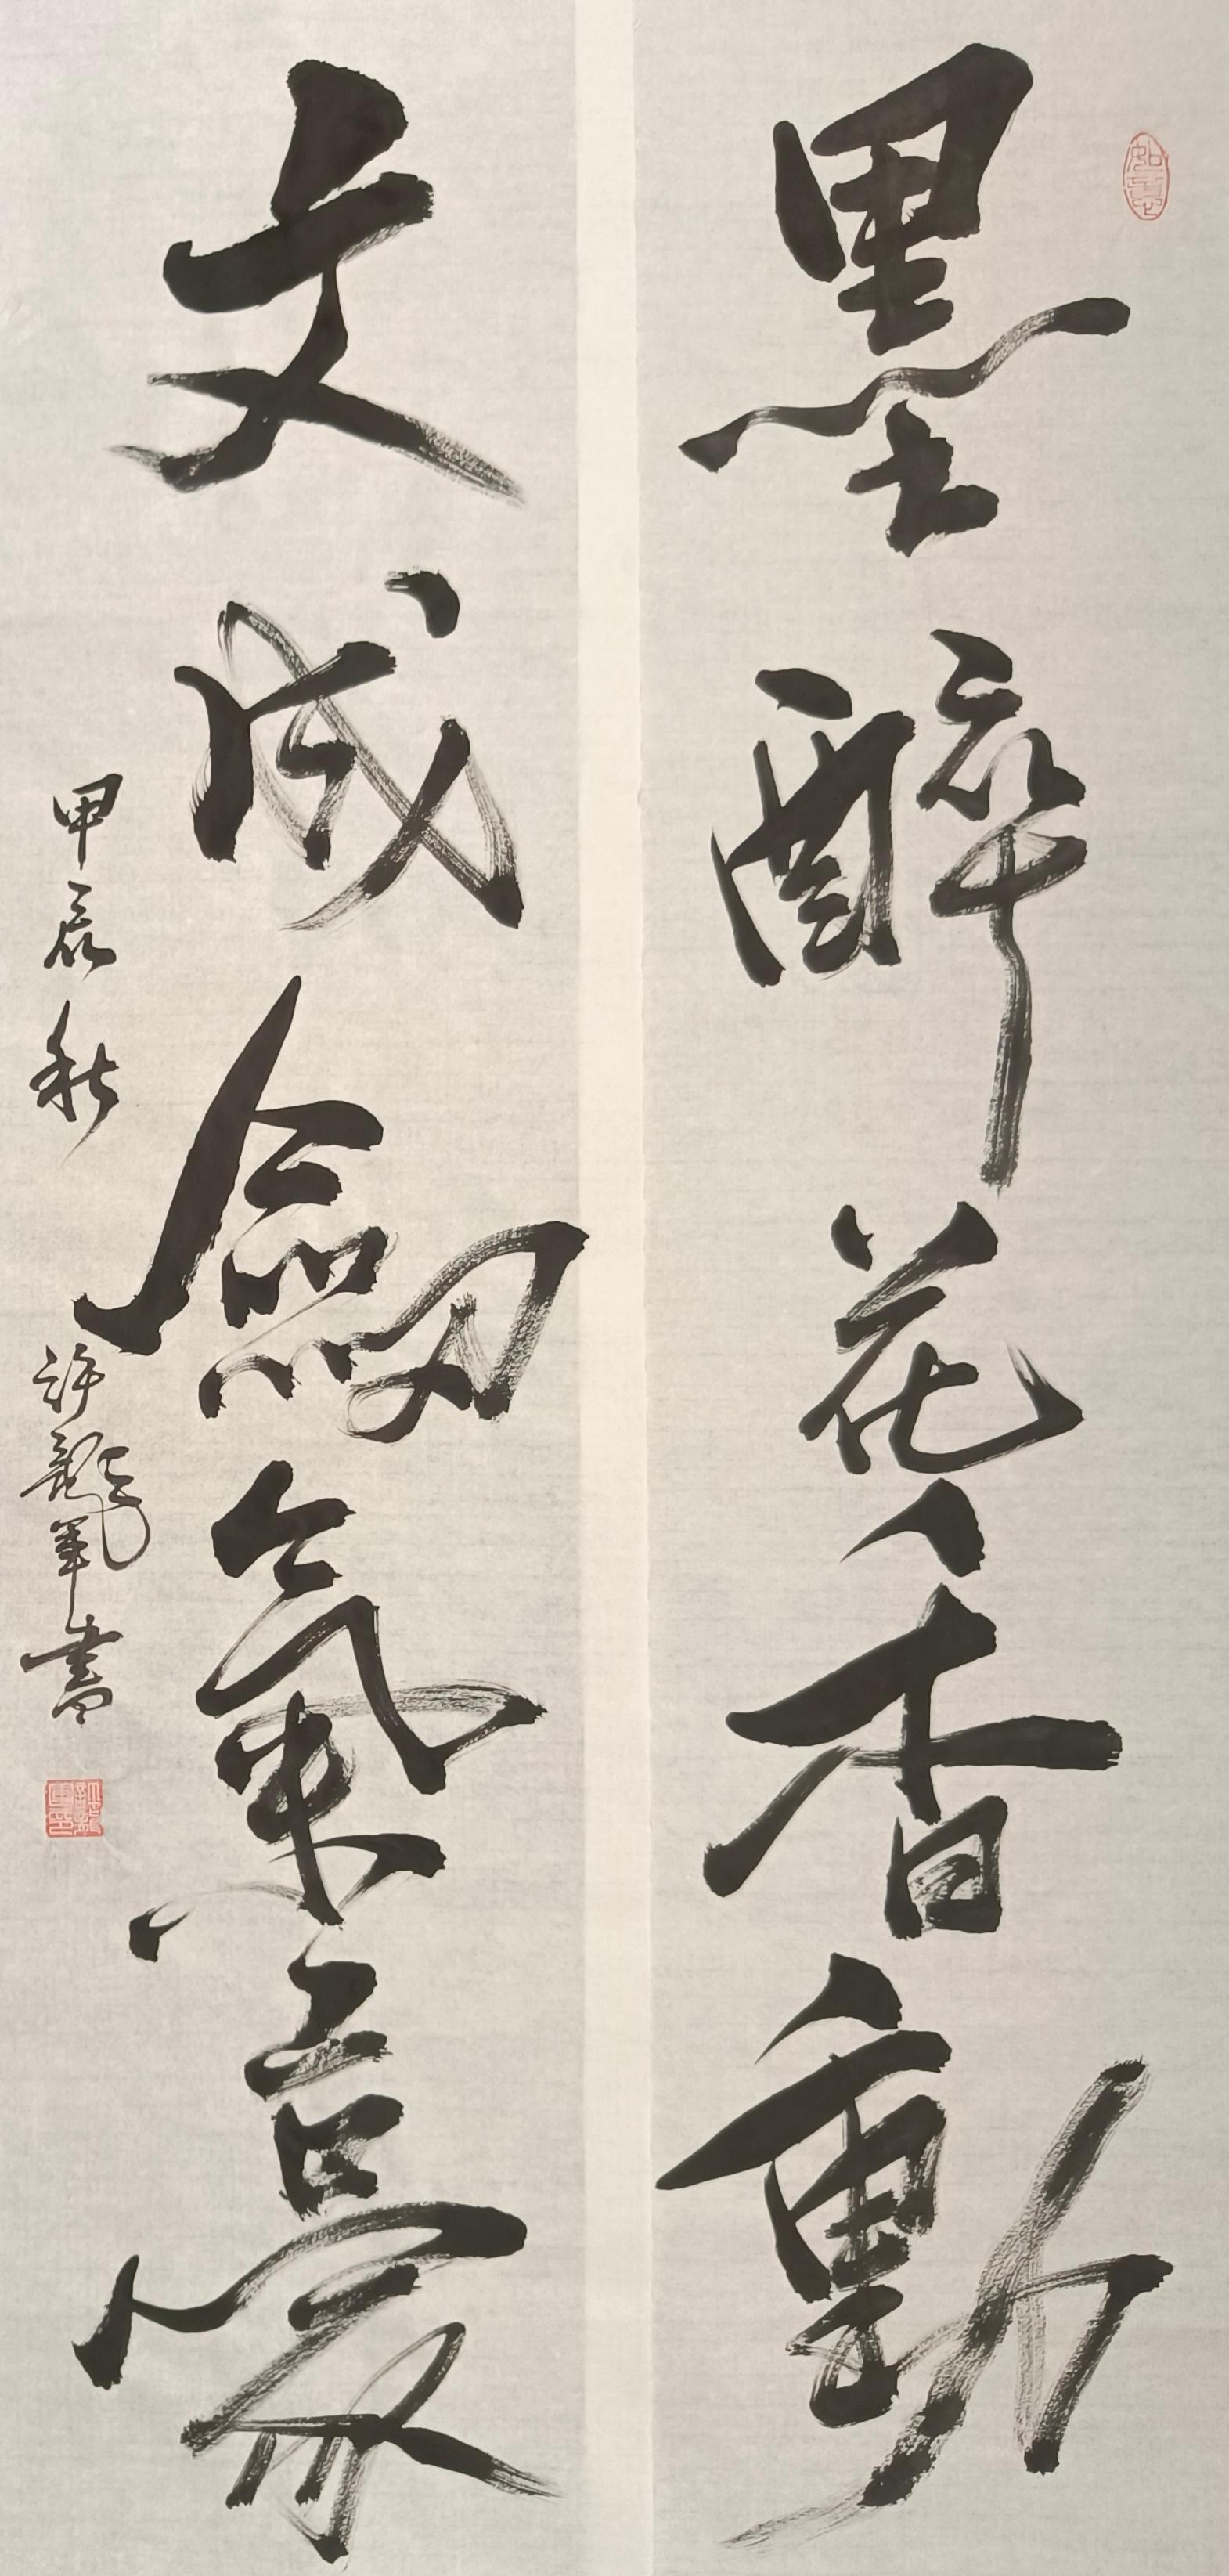 墨醉花香動
文成劍氣豪
甲辰秋
許龍軍書
如意